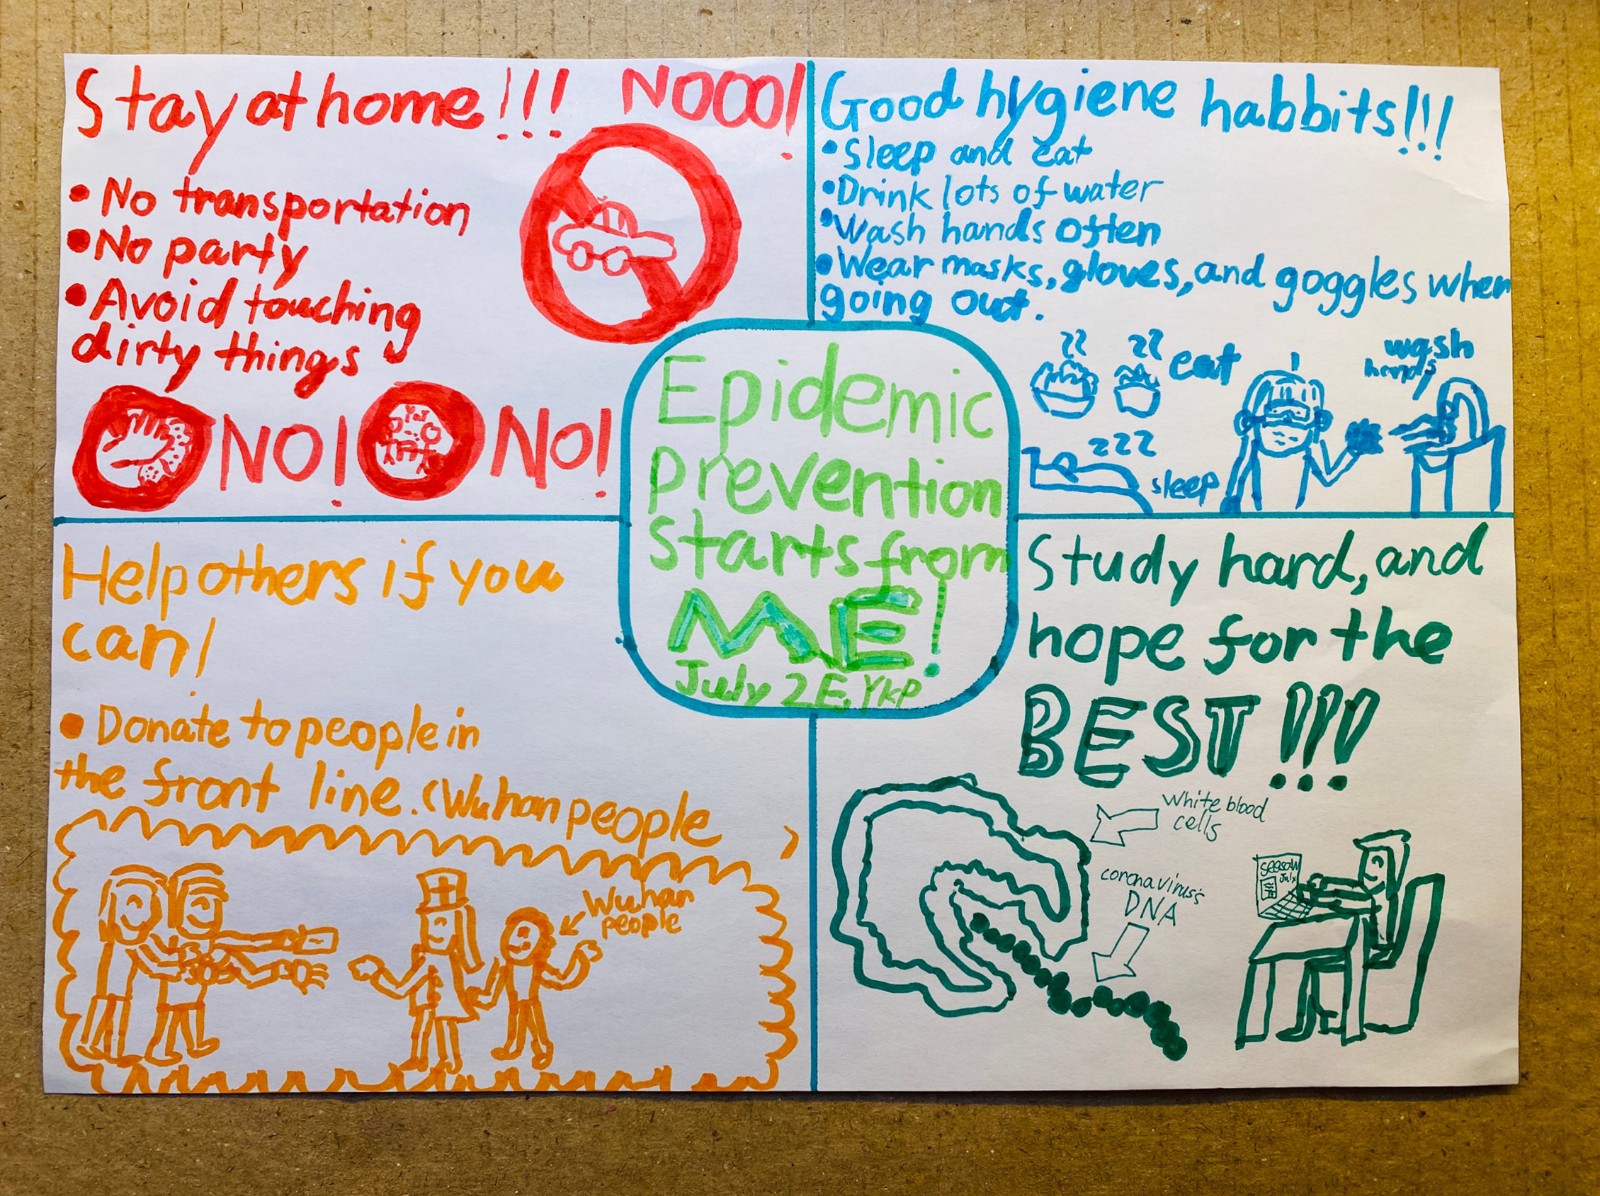 Stay at home!!! NOOO!
• No transportation
• No party
• Avoid touching
dirty things
NO! NO!
Good hygiene habbits!!!
• Sleep and eat
• Drink lots of water
• Wash hands often
• Wear masks, gloves, and goggles when
going out.
eat
wash
hands
zzz
sleep
Epidemic
prevention
starts from
ME!
July 2E YKP
Help others if you
can!
• Donate to people in
the front line. (Wuhan people
)
Wuhan
people
Study hard, and
hope for the
BEST!!!
White blood
cells
coronavirus's
DNA
seesaw
July